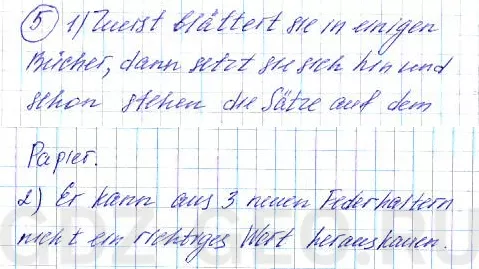 5 1) Zuerst blättert sie in einigen
Bücher, dann setzt sie sich hin und
schon stehen die Sätze auf dem
Papier.
2) Er kann aus 3 neuen Federhaltern
nicht ein richtiges Wort herauskauen.